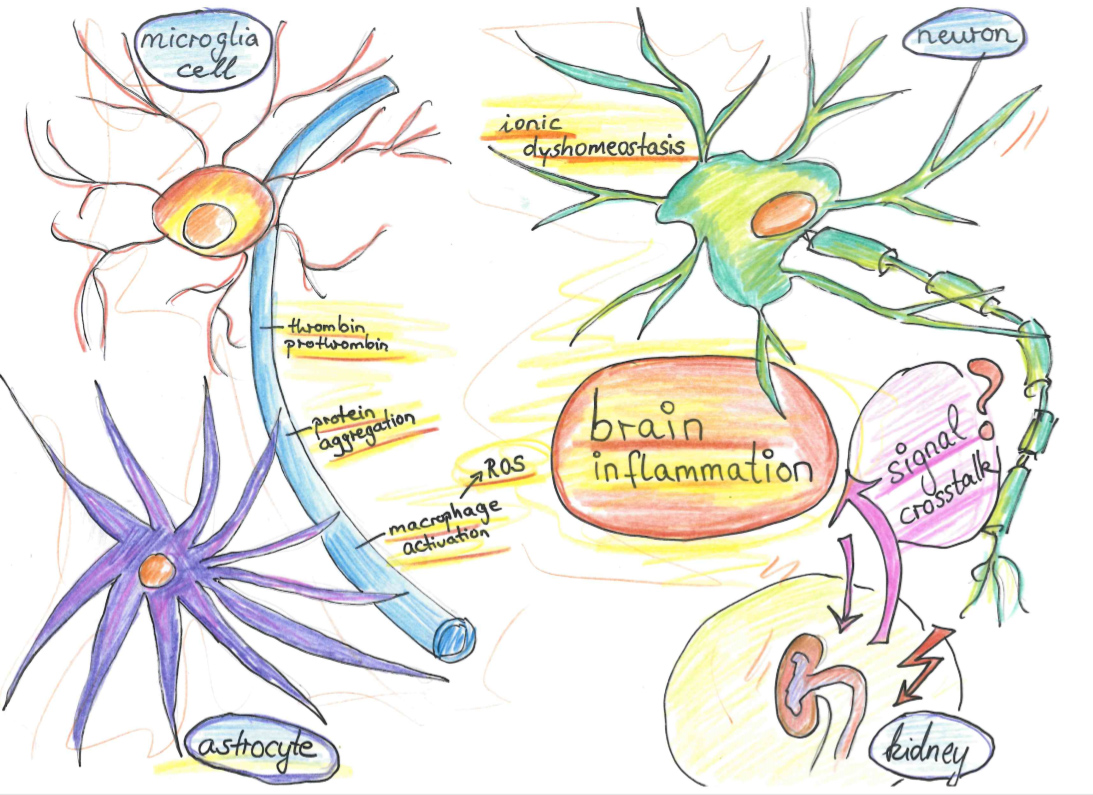 microglia
cell
neuron
ionic
dyshomeostasis
thrombin
prothrombin
protein
aggregation
ROS
macrophage
activation
brain
inflammation
signal
crosstalk
?
astrocyte
kidney